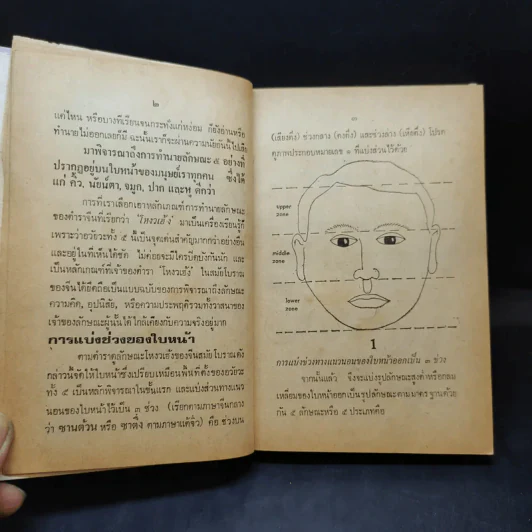 ๒
แต่ไหน หรือบางทีเรียนจนกระทั่งแก่หง่อม ก็ยังอ่านหรือ
ทำนายไม่ออกเลยก็มี ฉะนั้นเราก็จะผ่านความน่ายอันนั้นไปเสีย
มาพิจารณาถึงการทำนายลักษณะ ๕ อย่างที่
ปรากฏอยู่บนใบหน้าของมนุษย์เราทุกคน ซึ่งได้
แก่ คิ้ว, นัยน์ตา, จมูก, ปาก และหู ดีกว่า
การที่เราเลือกเอาหลักเกณฑ์การทำนายลักษณะ
ของตำราจีนที่เรียกว่า "โหงวเฮ้ง" มาเป็นเครื่องเรียนรู้ก็
เพราะว่าอวัยวะทั้ง ๕ นั้นเป็นจุดเด่นสำคัญมากกว่าอย่างอื่น
และอยู่ในที่เห็นได้ชัด ไม่ค่อยจะมีใครปิดบังกันนัก และ
เป็นหลักเกณฑ์ที่เจ้าของตำรา "โหงวเฮ้ง" ในสมัยโบราณ
ของจีนได้ยึดถือเป็นแบบฉบับของการพิจารณาถึงลักษณะ
ความคิด, อุปนิสัย, หรือความประพฤติรวมทั้งวาสนาของ
เจ้าของลักษณะผู้นั้นได้ ใกล้เคียงกับความจริงอยู่มาก
การแบ่งช่วงของใบหน้า
ตามตำราดูลักษณะโหงวเฮ้งของจีนสมัยโบราณดัง
กล่าวนี้จัดให้ใบหน้าซึ่งเปรียบเหมือนพื้นที่ตั้งของอวัยวะ
ทั้ง ๕ เป็นหลักพิจารณาในชั้นแรก และแบ่งส่วนทางแนว
นอนของใบหน้าไว้เป็น ๓ ช่วง (เรียกตามภาษาจีนกลาง
ว่า ซานต้วน หรือ ซาตึ่ง ตามภาษาแต้จิ๋ว) คือ ช่วงบน
๓
(เสี่ยงตึ่ง) ช่วงกลาง (ตงตึ่ง) และช่วงล่าง (เหี่ยตึ่ง) โปรด
ดูภาพประกอบหมายเลข ๑ ที่แบ่งส่วนไว้ด้วย
upper
zone
middle
zone
lower
zone
1
การแบ่งช่วงทางแนวนอนของใบหน้าออกเป็น ๓ ช่วง
จากนั้นแล้ว จึงจะแบ่งรูปลักษณะสูงต่ำหรือกลม
เหลี่ยมของใบหน้าออกเป็นรูปลักษณะตามมาตรฐานด้วย
กัน ๕ ลักษณะหรือ ๕ ประเภทคือ